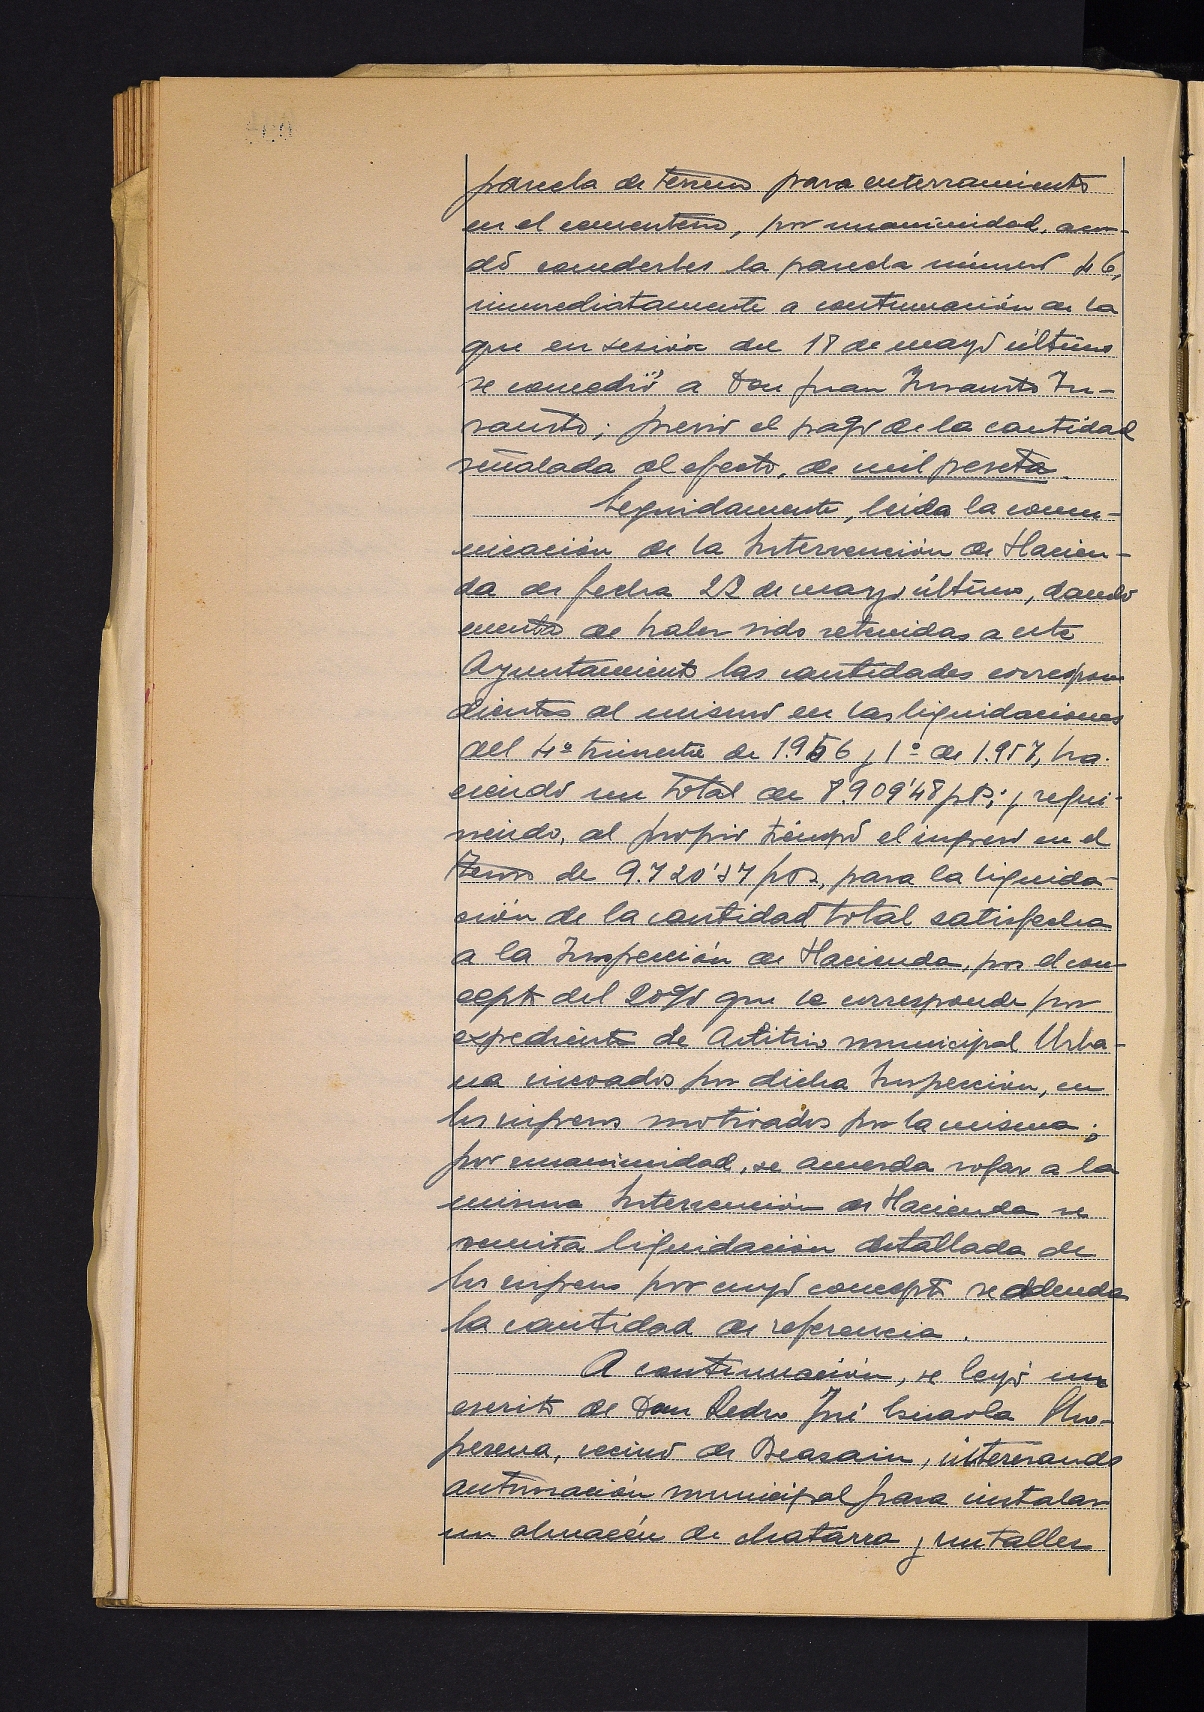 parcela de terreno para enterramiento
en el cementerio, por unanimidad, acor-
dó concederles la parcela número 46,
inmediatamente a continuación de la
que en sesión del 18 de mayo último
se concedió a Don Juan Insausti In-
sausti; previo el pago de la cantidad
señalada al efecto, de mil peseta.
Seguidamente, leida la comu-
nicación de la Intervención de Hacien-
da de fecha 22 de mayo último, dando
cuenta de haber sido retenidas a este
Ayuntamiento las cantidades correspon
dientes al mismo en las liquidaciones
del 4º trimestre de 1956 y 1º de 1.957, ha-
ciendo un total de 8.909'48 pts; y requi-
riendo, al propio tiempo el ingreso en el
Tesoro de 9.720'57 pts, para la liquida-
ción de la cantidad total satisfecha
a la Inspección de Hacienda, por el con-
cepto del 20% que le corresponde por
expediente de Arbitrio municipal Urba-
na incoados por dicha Inspección, en
los ingresos motivados por la misma;
por unanimidad, se acuerda rogar a la
misma Intervención de Hacienda se
remita liquidación detallada de
los ingresos por cuyo concepto se adeuda
la cantidad de referencia.
A continuación, se leyó un
escrito de Don Pedro José
perena, vecino de Beasain, interesando
autorización municipal para instalar
un almacén de chatarra y un taller